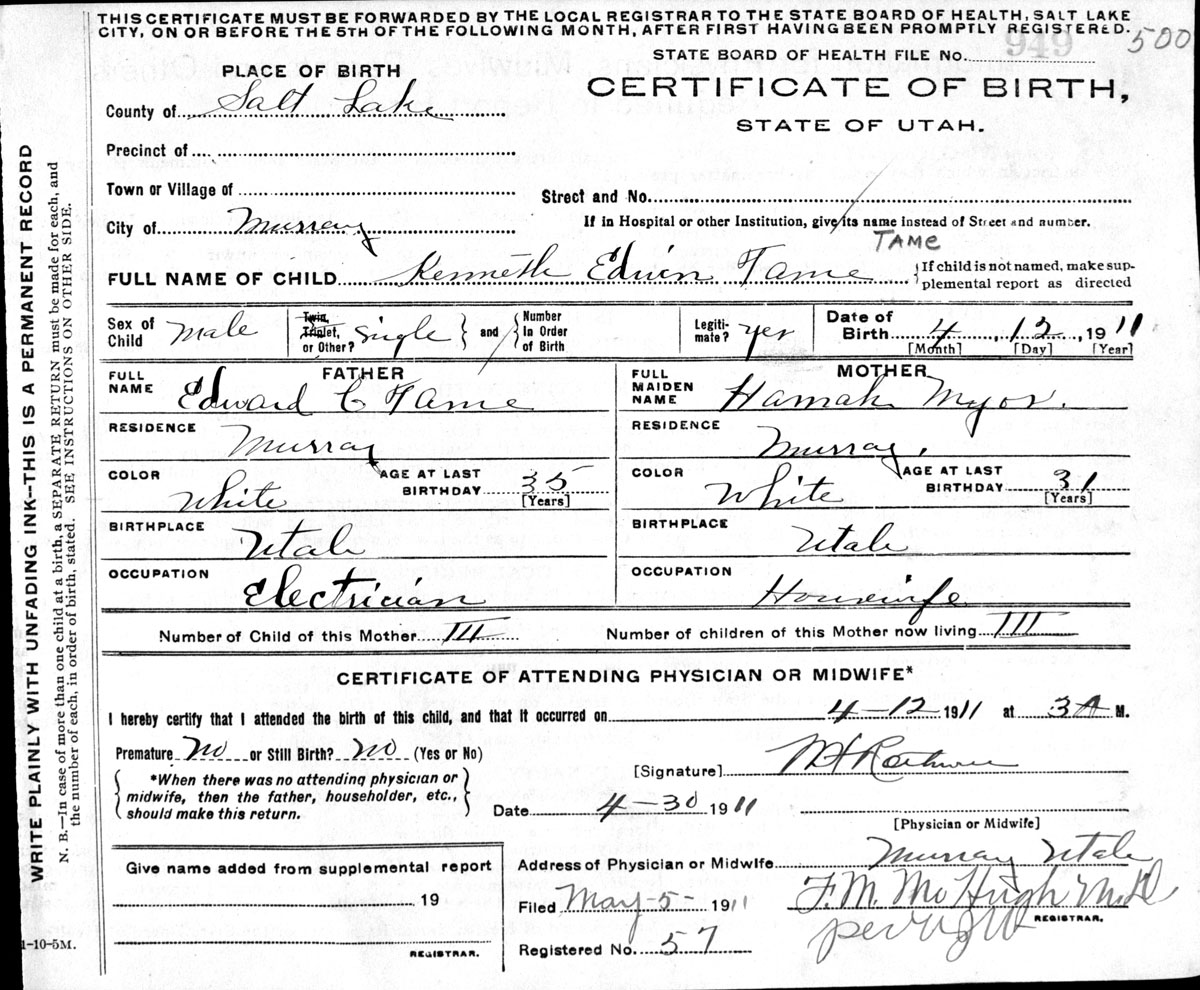 THIS CERTIFICATE MUST BE FORWARDED BY THE LOCAL REGISTRAR TO THE STATE BOARD OF HEALTH, SALT LAKE
CITY, ON OR BEFORE THE 5TH OF THE FOLLOWING MONTH, AFTER FIRST HAVING BEEN PROMPTLY REGISTERED.
500
STATE BOARD OF HEALTH FILE No. 949
PLACE OF BIRTH
CERTIFICATE OF BIRTH,
STATE OF UTAH.
County of Salt Lake
Precinct of
Town or Village of
Street and No.
City of Murray
If in Hospital or other Institution, give its name instead of Street and number.
TAME
FULL NAME OF CHILD Kenneth Edwin Tame
If child is not named, make sup-
plemental report as directed
Sex of Child Male
Twin, Triplet, or Other? Single
and Number In Order of Birth
Legiti-mate? yes
Date of Birth 4 12, 1911
[Month] [Day] [Year]
FATHER
FULL NAME Edward C Tame
RESIDENCE Murray
COLOR White
AGE AT LAST BIRTHDAY 35
[Years]
BIRTHPLACE Utah
OCCUPATION Electrician
MOTHER
FULL MAIDEN NAME Hannah
RESIDENCE Murray.
COLOR White
AGE AT LAST BIRTHDAY 31
[Years]
BIRTHPLACE Utah
OCCUPATION Housewife
Number of Child of this Mother III
Number of children of this Mother now living III
CERTIFICATE OF ATTENDING PHYSICIAN OR MIDWIFE*
I hereby certify that I attended the birth of this child, and that it occurred on 4-12 1911 at 3A M.
Premature No or Still Birth? No (Yes or No)
*When there was no attending physician or
midwife, then the father, householder, etc.,
should make this return.
[Signature]
Date 4-30 1911
[Physician or Midwife]
Address of Physician or Midwife Murray Utah
Give name added from supplemental report
19
REGISTRAR.
Filed May-5- 1911
F.M. McHugh M.D
REGISTRAR.
per
Registered No. 57
1-10-5M.
WRITE PLAINLY WITH UNFADING INK--THIS IS A PERMANENT RECORD
N. B.--In case of more than one child at a birth, a SEPARATE RETURN must be made for each, and
the number of each, in order of birth, stated. SEE INSTRUCTIONS ON OTHER SIDE.